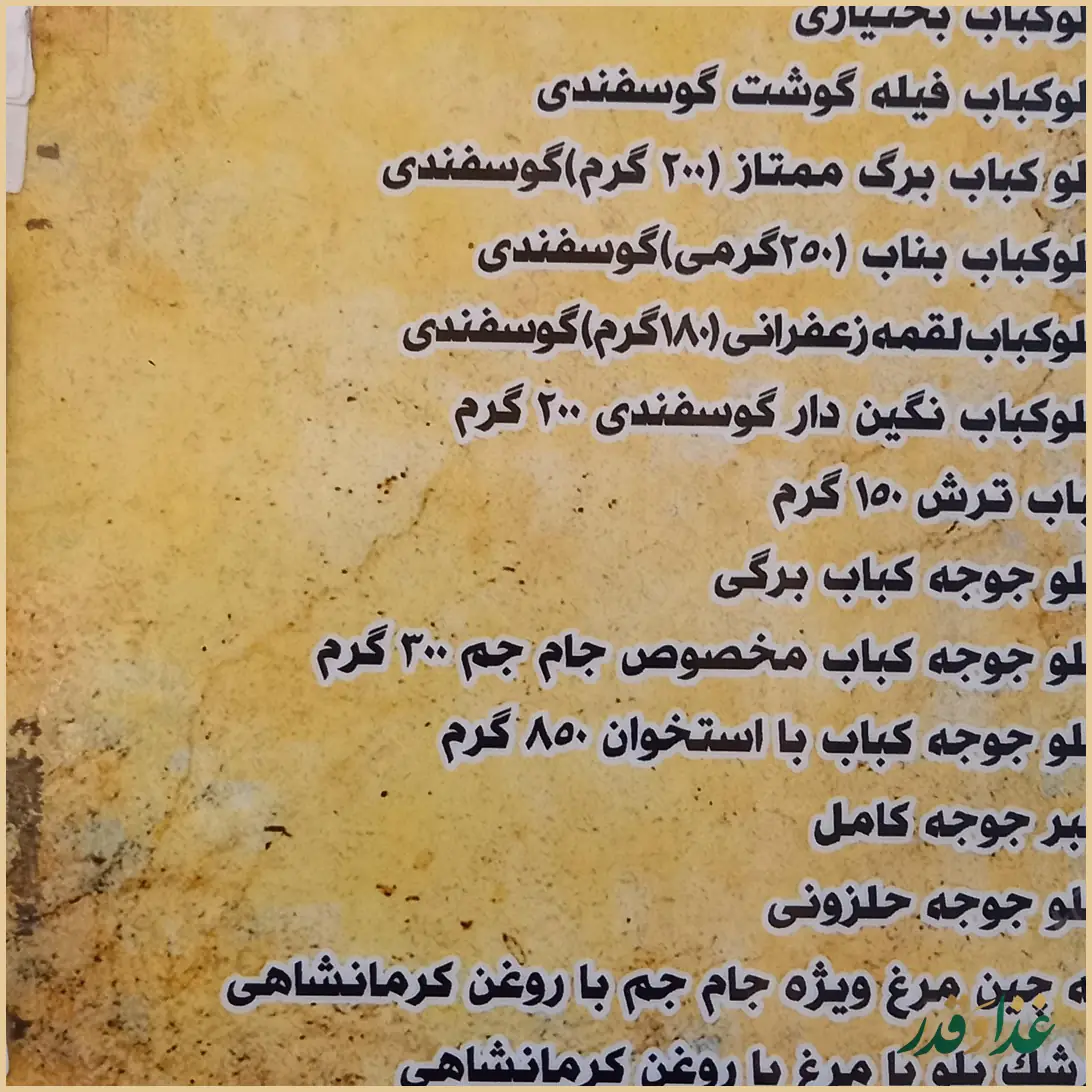 لوکباب بختیاری
لوکباب فیله گوشت گوسفندی
لو کباب برگ ممتاز (۲۰۰ گرم)گوسفندی
لوکباب بناب (۲۵۰گرمی)گوسفندی
لوکباب لقمه زعفرانی(۱۸۰گرم)گوسفندی
لوکباب نگین دار گوسفندی ۲۰۰ گرم
باب ترش ۱۵۰ گرم
لو جوجه کباب برگی
لو جوجه کباب مخصوص جام جم ۳۰۰ گرم
لو جوجه کباب با استخوان ۸۵۰ گرم
بر جوجه کامل
لو جوجه حلزونی
ه چین مرغ ویژه جام جم با روغن کرمانشاهی
شك پلو با مرغ با روغن کرمانشاهی
غذا و قدر